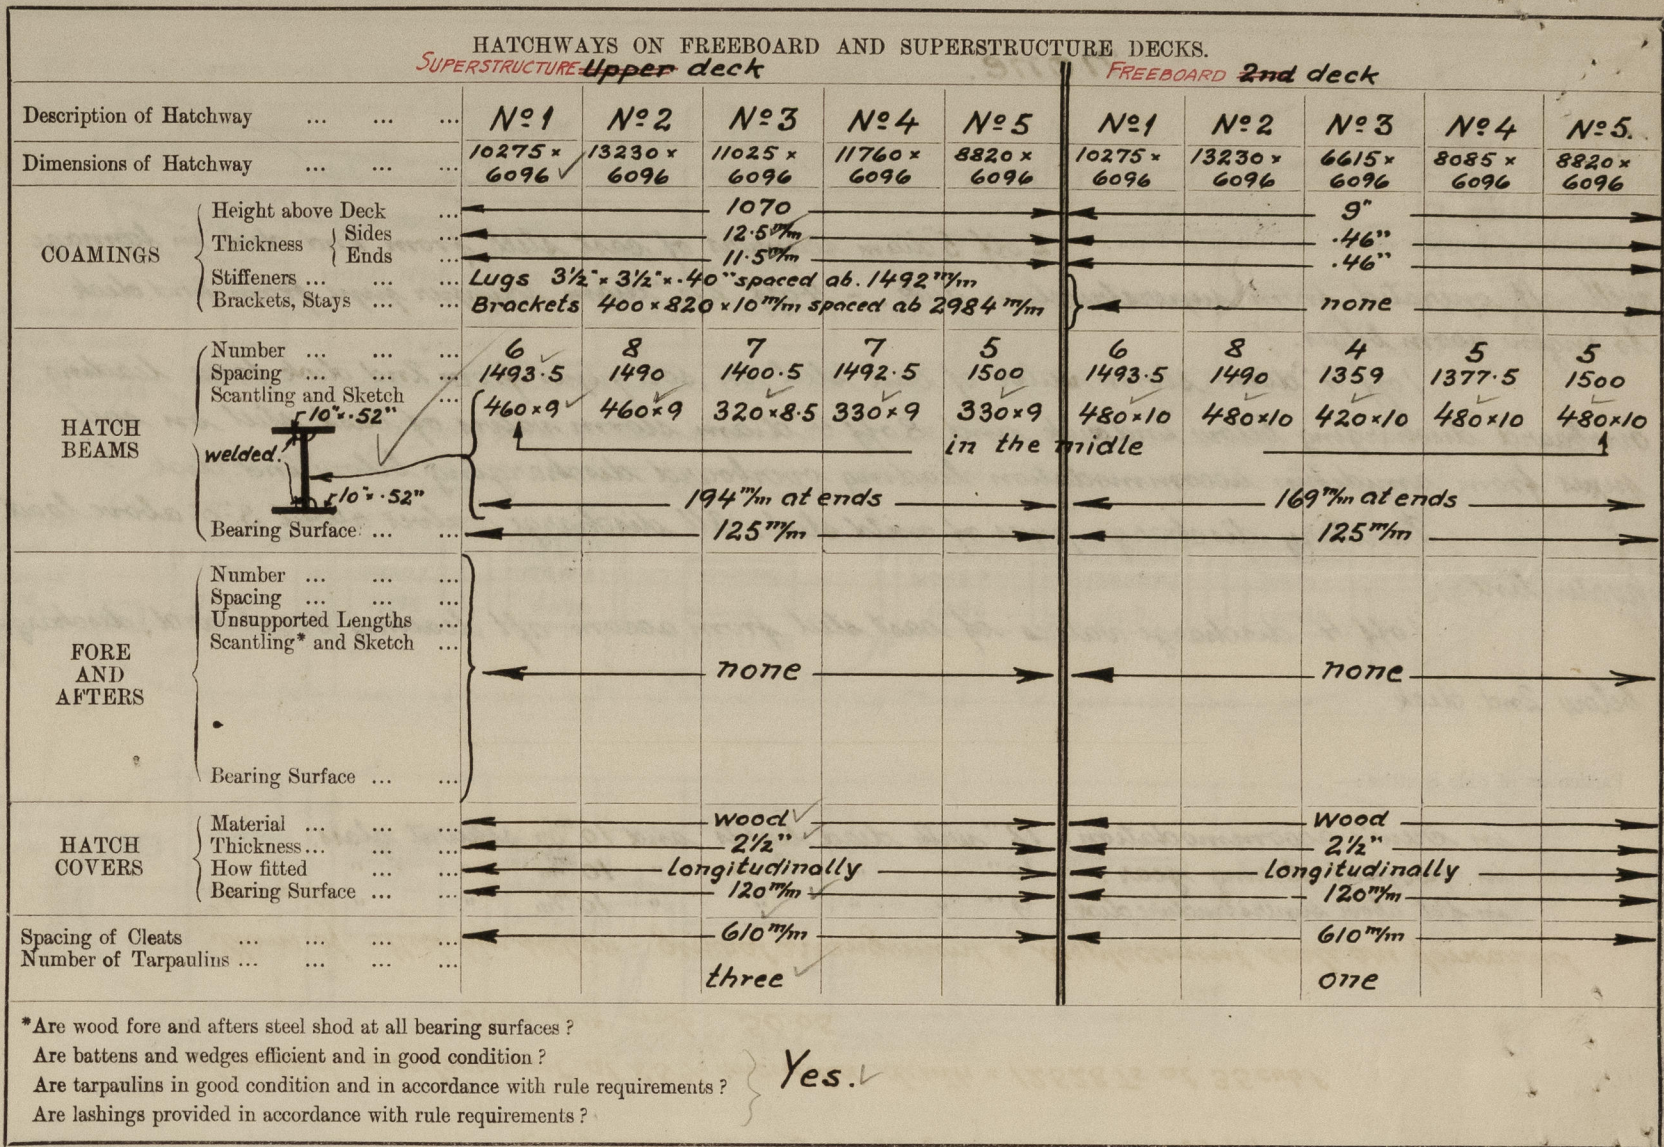 HATCHWAYS ON FREEBOARD AND SUPERSTRUCTURE DECKS.
SUPERSTRUCTURE Upper deck FREEBOARD 2nd deck
Description of Hatchway ... ... ... Nº1 Nº2 Nº3 Nº4 Nº5 Nº1 Nº2 Nº3 Nº4 Nº5.
Dimensions of Hatchway ... ... ... 10275× 13230× 11025× 11760× 8820× 10275× 13230× 6615× 8085× 8820×
6096 6096 6096 6096 6096 6096 6096 6096 6096 6096
COAMINGS
Height above Deck ... 1070 9"
Thickness { Sides ... 12.5 m/m .46"
Ends ... 11.5 m/m .46"
Stiffeners ... ... ... Lugs 3½"×3½"×.40" spaced ab. 1492 m/m
Brackets, Stays ... ... Brackets 400×820×10 m/m spaced ab 2984 m/m none
HATCH BEAMS
Number ... ... ... 6 8 7 7 5 6 8 4 5 5
Spacing ... ... ... 1493.5 1490 1400.5 1492.5 1500 1493.5 1490 1359 1377.5 1500
Scantling and Sketch ... 460×9 460×9 320×8.5 330×9 330×9 480×10 480×10 420×10 480×10 480×10
10"×.52"
in the midle
welded.
10"×.52"
194 m/m at ends 169 m/m at ends
Bearing Surface ... ... 125 m/m 125 m/m
FORE AND AFTERS
Number ... ... ...
Spacing ... ... ...
Unsupported Lengths ...
Scantling* and Sketch ...
none none
Bearing Surface ... ...
HATCH COVERS
Material ... ... ... wood wood
Thickness... ... ... 2½" 2½"
How fitted ... ... longitudinally longitudinally
Bearing Surface ... ... 120 m/m 120 m/m
Spacing of Cleats ... ... ... ... 610 m/m 610 m/m
Number of Tarpaulins ... ... ... ... three one
*Are wood fore and afters steel shod at all bearing surfaces ?
Are battens and wedges efficient and in good condition ?
Are tarpaulins in good condition and in accordance with rule requirements ? Yes.
Are lashings provided in accordance with rule requirements ?